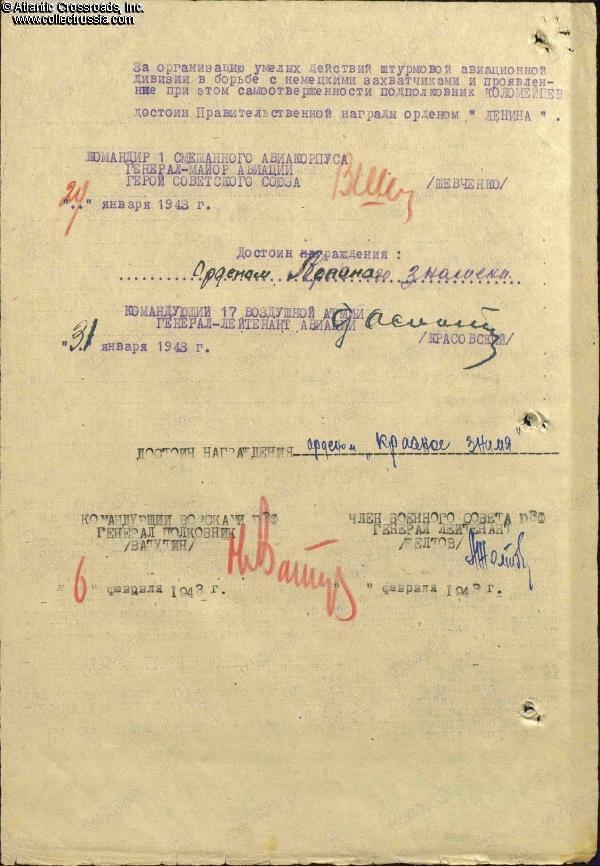 © Atlantic Crossroads, Inc.
www.collectrussia.com
За организацию умелых действий штурмовой авиационной
дивизии в борьбе с немецкими захватчиками и проявлен-
ние при этом самоотверженности подполковник КОЛОМЕЙЦЕВ
достоин Правительственной награды орденом " ЛЕНИНА " .
КОМАНДИР 1 СМЕШАННОГО АВИАКОРПУСА
ГЕНЕРАЛ-МАЙОР АВИАЦИИ
ГЕРОЙ СОВЕТСКОГО СОЮЗА
/ШЕВЧЕНКО/
"29" января 1943 г.
Достоин награждения :
Орденом Красного знамени
КОМАНДУЮЩИЙ 17 ВОЗДУШНОЙ АРМИИ
ГЕНЕРАЛ-ЛЕЙТЕНАНТ АВИАЦИИ
/КРАСОВСКИЙ/
"31 января 1943 г.
ДОСТОИН НАГРАЖДЕНИЯ орденом "Красное знамя"
КОМАНДУЮЩИЙ ВОЙСКАМИ ЮЗФ
ГЕНЕРАЛ ПОЛКОВНИК
/ВАТУТИН/
"6" февраля 1943 г.
ЧЛЕН ВОЕННОГО СОВЕТА ЮЗФ
ГЕНЕРАЛ ЛЕЙТЕНАНТ
/ЖЕЛТОВ/
" " февраля 1943 г.